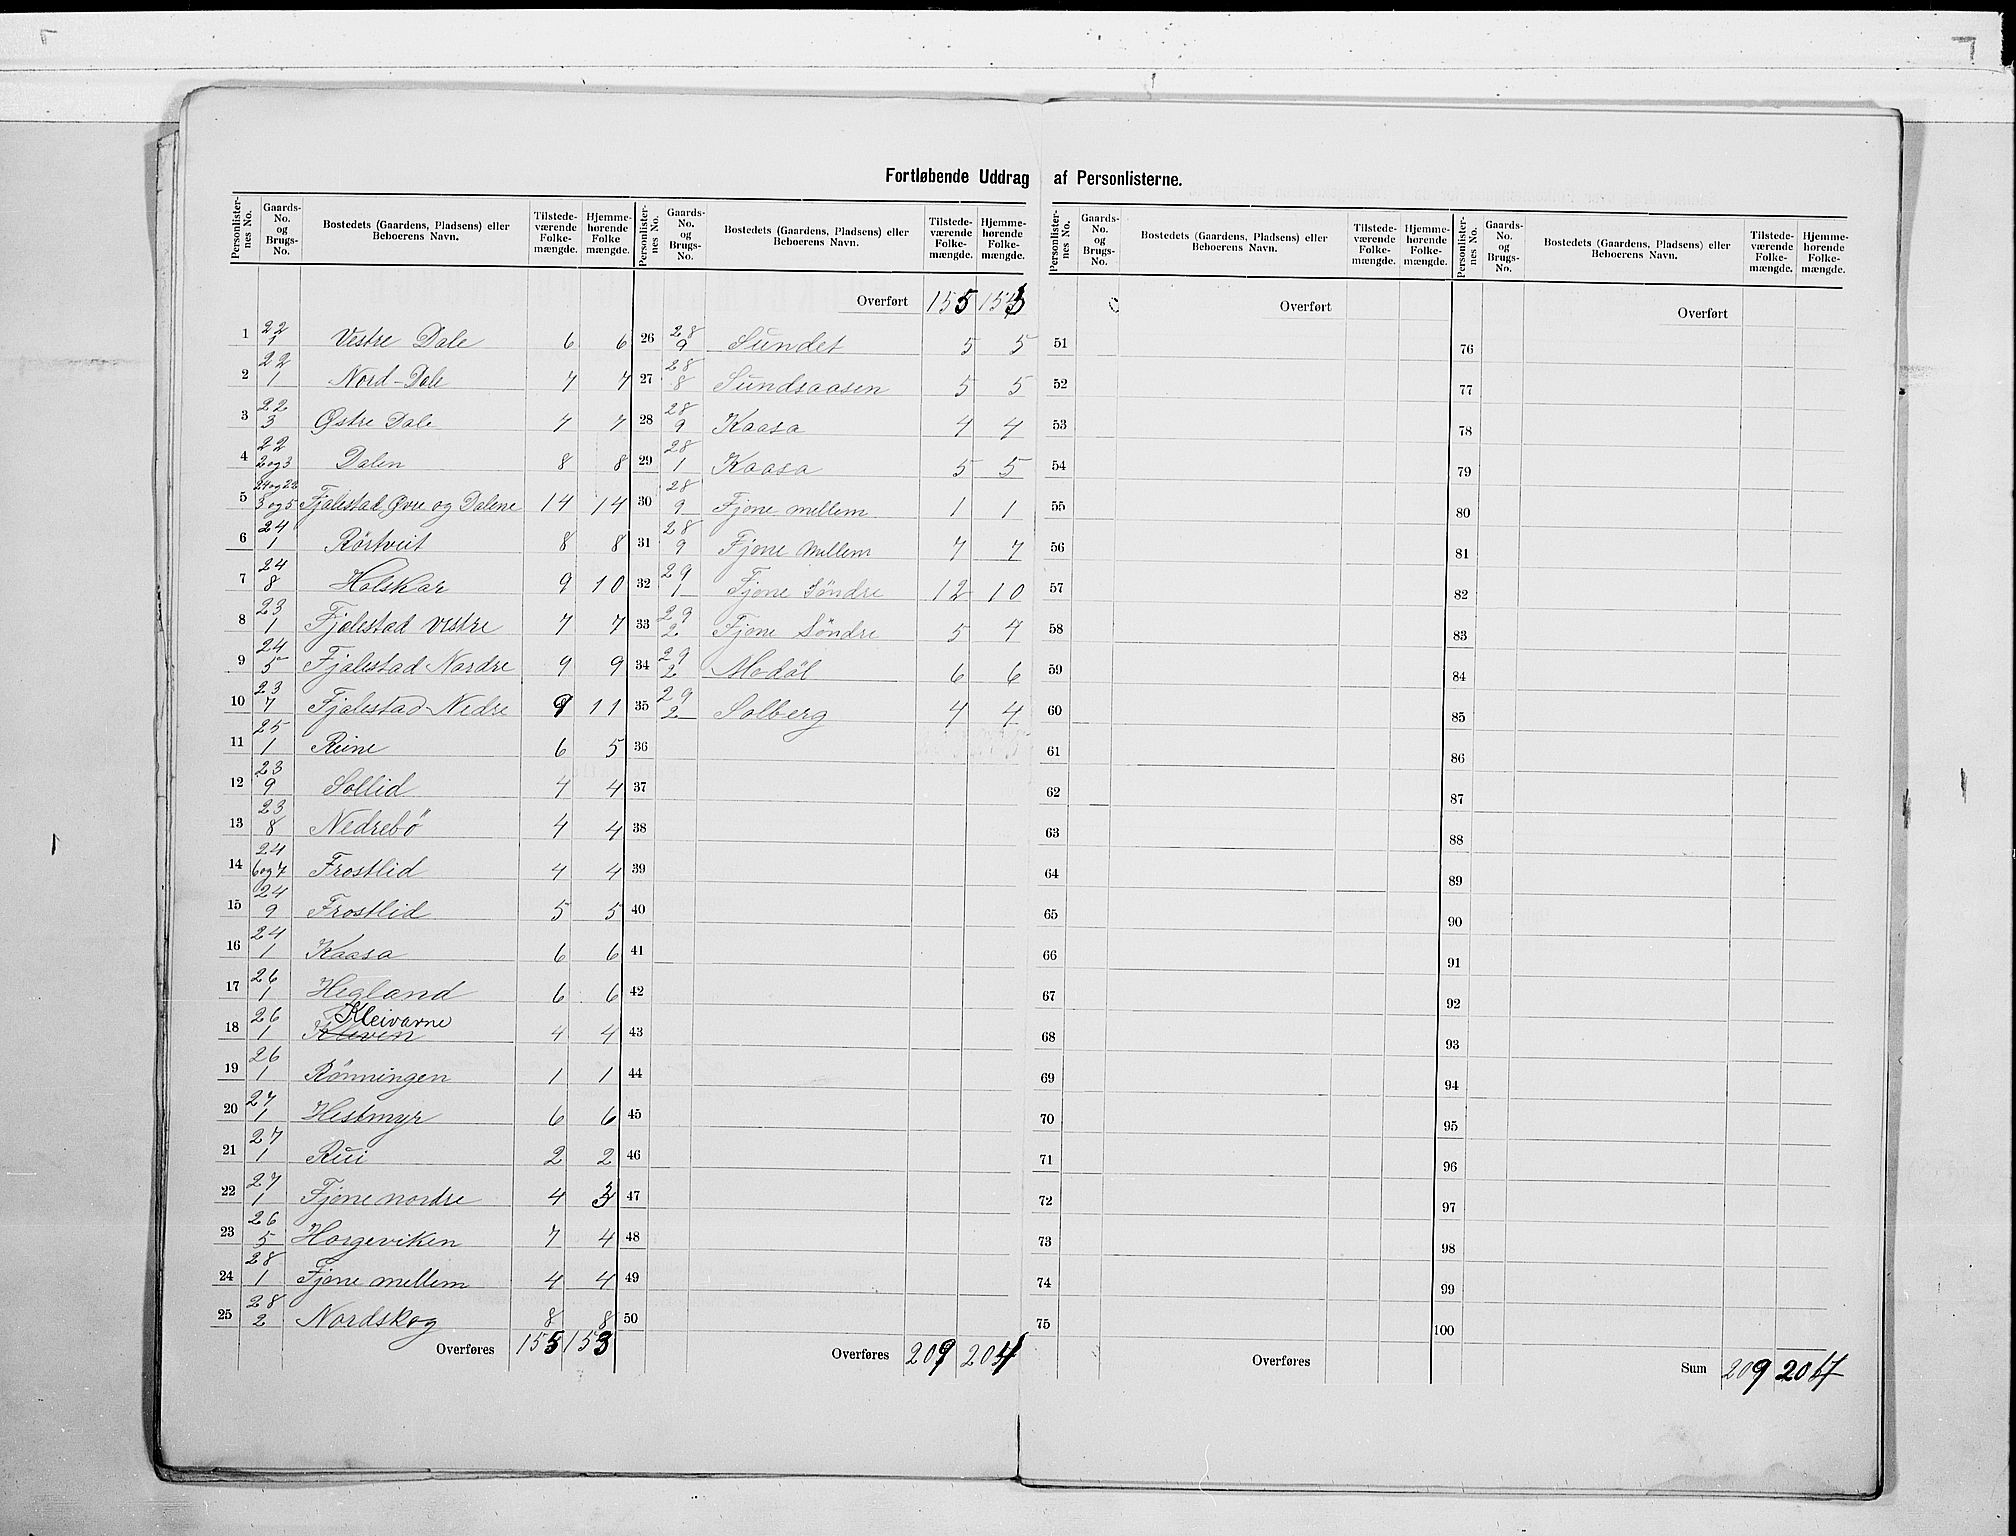 Fortløbende Uddrag af Personlisterne.
Personlisternes No. Gaards-No. og Brugs-No. Bostedets (Gaardens, Pladsens) eller Beboerens Navn. Tilstedeværende Folkemængde. Hjemmehørende Folkemængde.
1 22/1 Vestre Dale 6 6
2 22/1 Nord-Dale 7 7
3 22/3 Østre Dale 7 7
4 22/2og3 Dalen 8 8
5 24og22/3og5 Fjalestad Øvre og Dalene 14 14
6 24/1 Rörtveit 8 8
7 24/8 Holskar 9 10
8 23/1 Fjalestad vestre 7 7
9 24/5 Fjalestad Nordre 9 9
10 23/7 Fjalestad Nedre 9 11
11 25/1 Reine 6 5
12 23/9 Sollid 4 4
13 23/8 Nedrebö 4 4
14 24/6og4 Frostlid 4 4
15 24/9 Frostlid 5 5
16 24/1 Kaasa 6 6
17 26/1 Hegland 6 6
Kleivarne
18 26/1 Kleven 4 4
19 26/1 Rönningen 1 1
20 27/1 Hestmyr 6 6
21 27/1 Rui 2 2
22 27/1 Fjone nordre 4 3
23 26/5 Horgeviken 7 4
24 28/1 Fjone mellem 4 4
25 28/2 Nordskog 8 8
Overføres 155 153
Personlisternes No. Gaards-No. og Brugs-No. Bostedets (Gaardens, Pladsens) eller Beboerens Navn. Tilstedeværende Folkemængde. Hjemmehørende Folkemængde.
Overført 155 153
26 28/9 Sundet 5 5
27 28/8 Sundsaasen 5 5
28 28/9 Kaasa 4 4
29 28/1 Kaasa 5 5
30 28/9 Fjone mellem 1 1
31 28/9 Fjone mellem 7 7
32 29/1 Fjone Söndre 12 10
33 29/2 Fjone Söndre 5 4
34 29/2 Modöl 6 6
35 29/2 Solberg 4 4
36
37
38
39
40
41
42
43
44
45
46
47
48
49
50
Overføres 209 204
Personlisternes No. Gaards-No. og Brugs-No. Bostedets (Gaardens, Pladsens) eller Beboerens Navn. Tilstedeværende Folkemængde. Hjemmehørende Folkemængde.
Overført
51
52
53
54
55
56
57
58
59
60
61
62
63
64
65
66
67
68
69
70
71
72
73
74
75
Overføres
Personlisternes No. Gaards-No. og Brugs-No. Bostedets (Gaardens, Pladsens) eller Beboerens Navn. Tilstedeværende Folkemængde. Hjemmehørende Folkemængde.
Overført
76
77
78
79
80
81
82
83
84
85
86
87
88
89
90
91
92
93
94
95
96
97
98
99
100
Sum 209 204